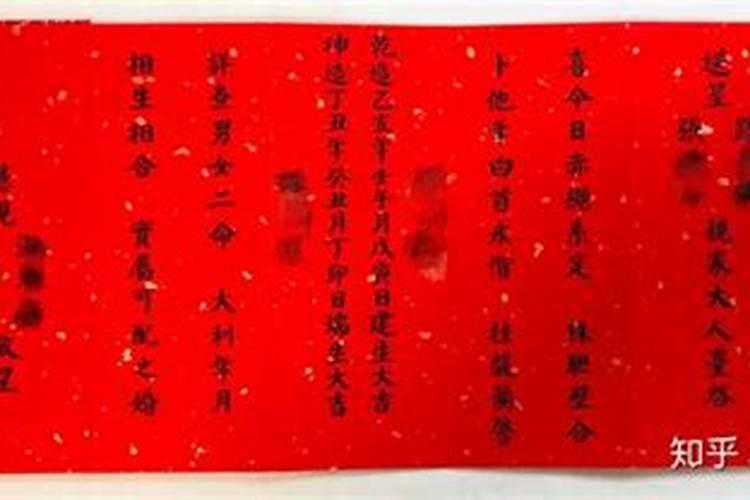 送呈 親家大人臺啓
張
喜今日赤繩系定 珠聯璧合
卜他年白首永偕 桂馥蘭馨
乾造乙亥年壬午月戊寅日建生大吉
坤造丁丑年癸丑月丁卯日端生大吉
詳查男女二命 大利年月
相生相合 實屬可配之婚
知乎